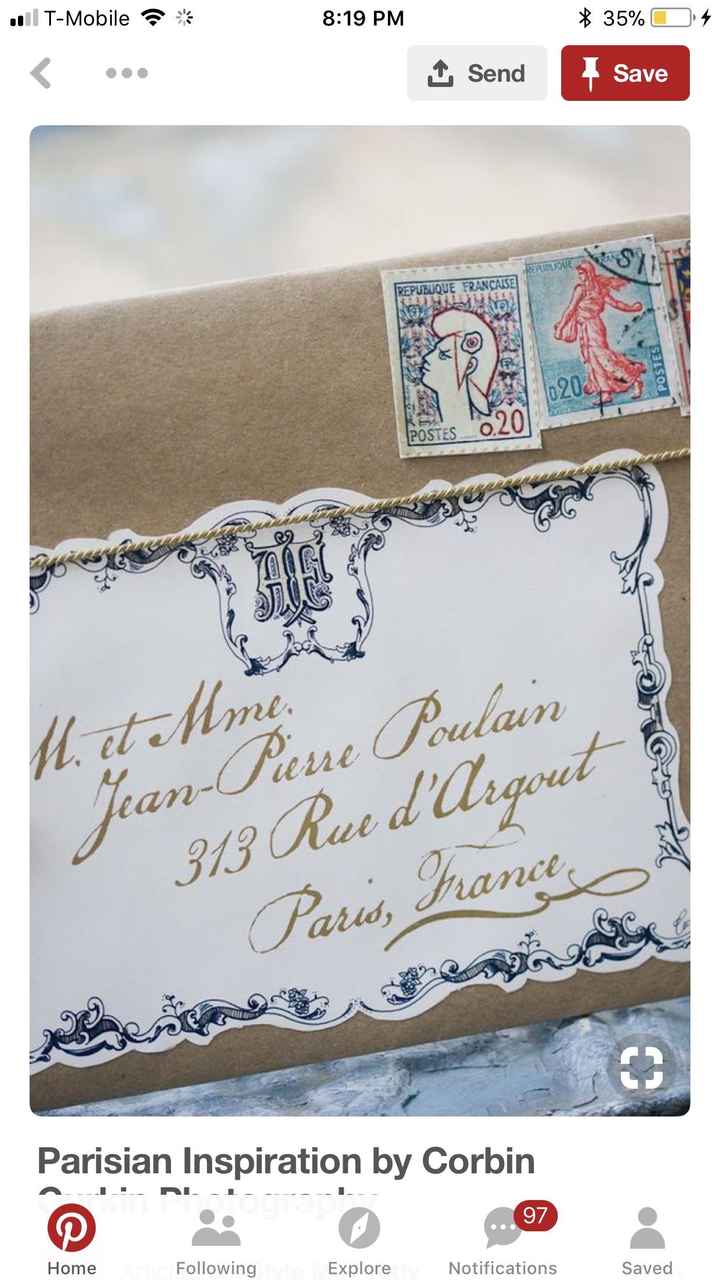 T-Mobile 8:19 PM 35%
Send Save
REPUBLIQUE FRANÇAISE
POSTES 0,20
REPUBLIQUE
0,20 POSTES
M. et Mme.
Jean-Pierre Poulain
313 Rue d'Argout
Paris, France
Parisian Inspiration by Corbin
Photography
97
Home Following Explore Notifications Saved